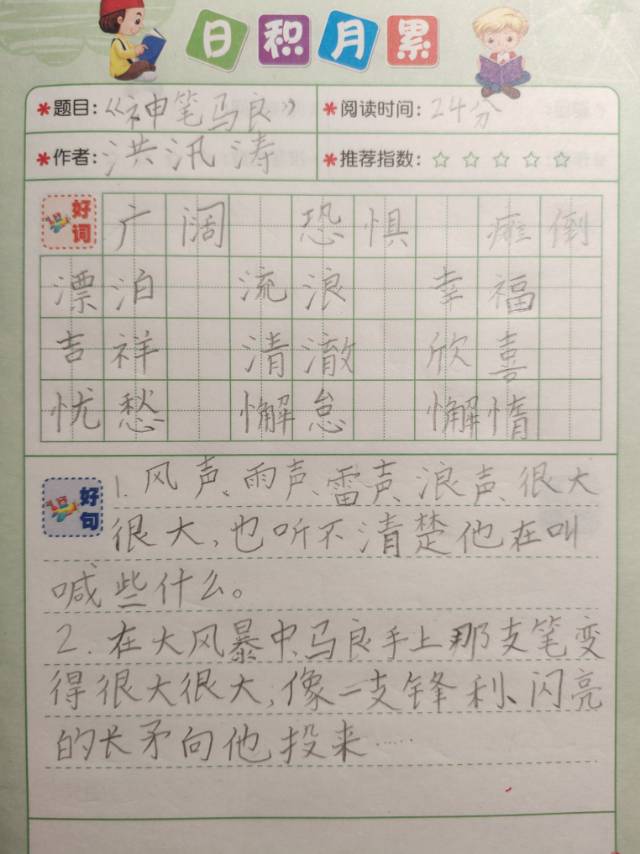 日积月累
*题目:《神笔马良》 *阅读时间:24分
*作者:洪汛涛 *推荐指数:☆☆☆☆☆
好词 广阔 恐惧 瘫倒
漂泊 流浪 幸福
吉祥 清澈 欣喜
忧愁 懈怠 懈惰
好句 1.风声、雨声、雷声、浪声、很大
很大,也听不清楚他在叫
喊些什么。
2.在大风暴中,马良手上那支笔变
得很大很大,像一支锋利、闪亮
的长矛向他投来……